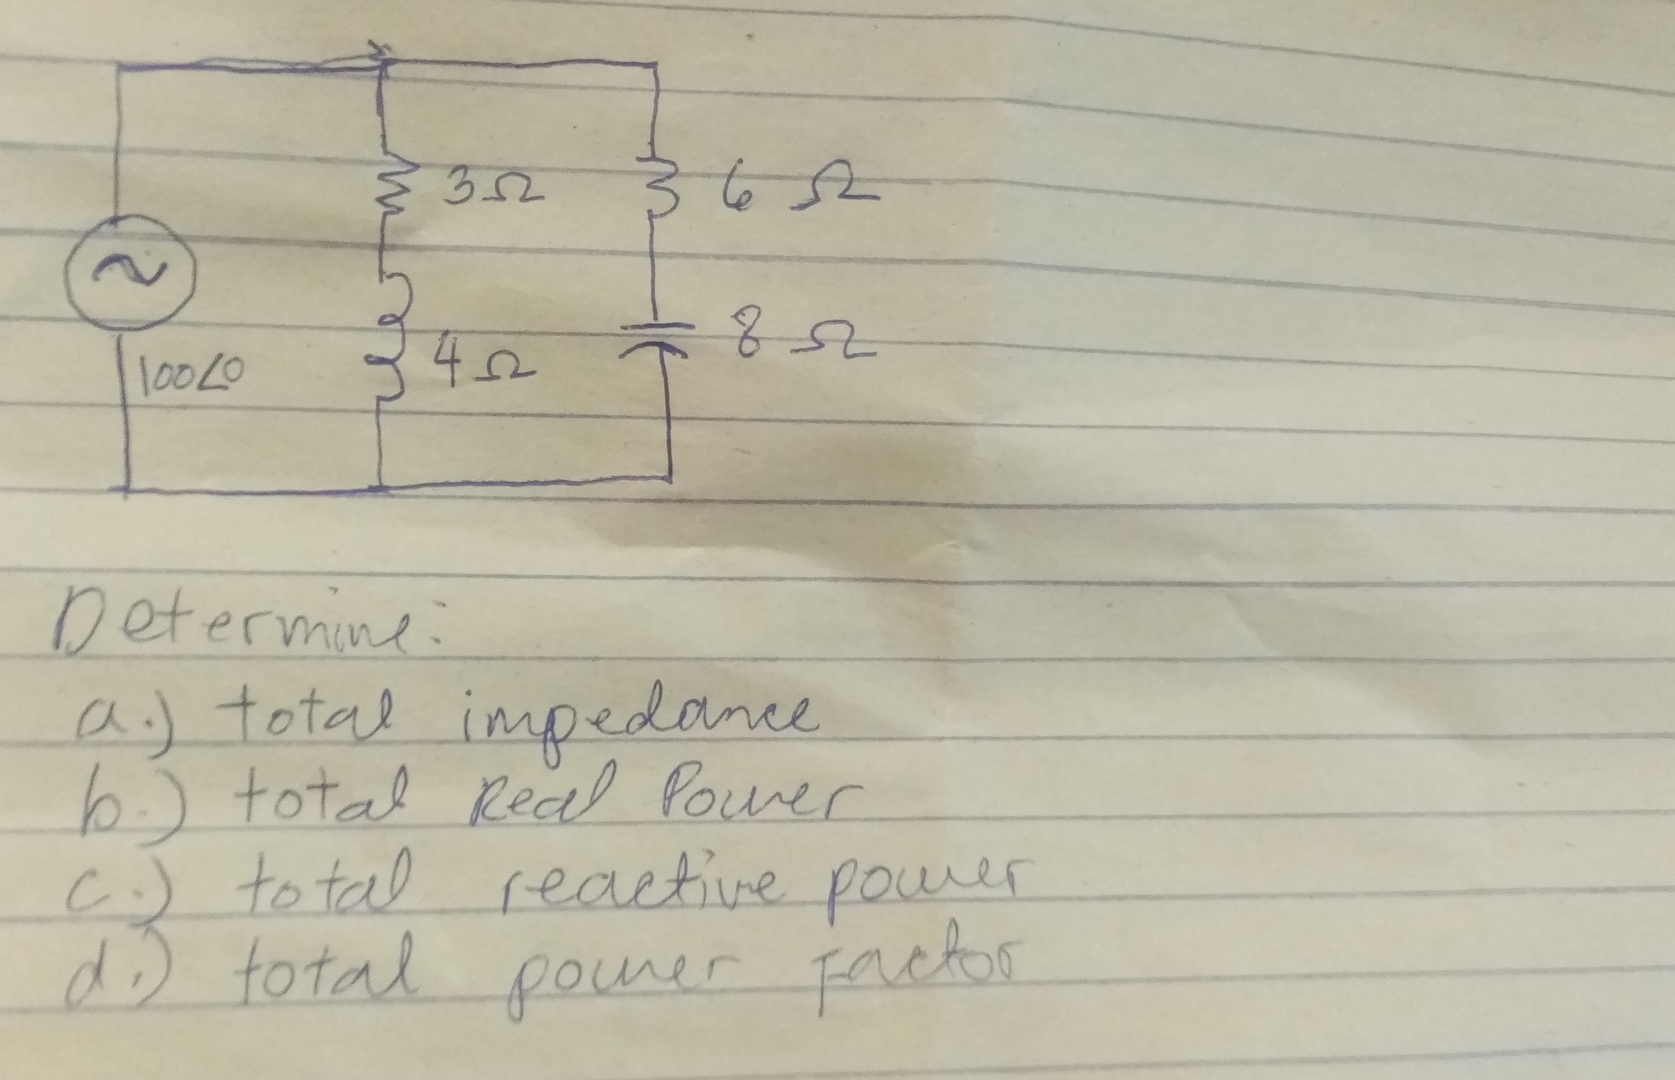 3Ω
6 Ω
4Ω
8 Ω
100∠0
Determine:
a.) total impedance
b.) total Real Power
c.) total reactive power
d.) total power factor